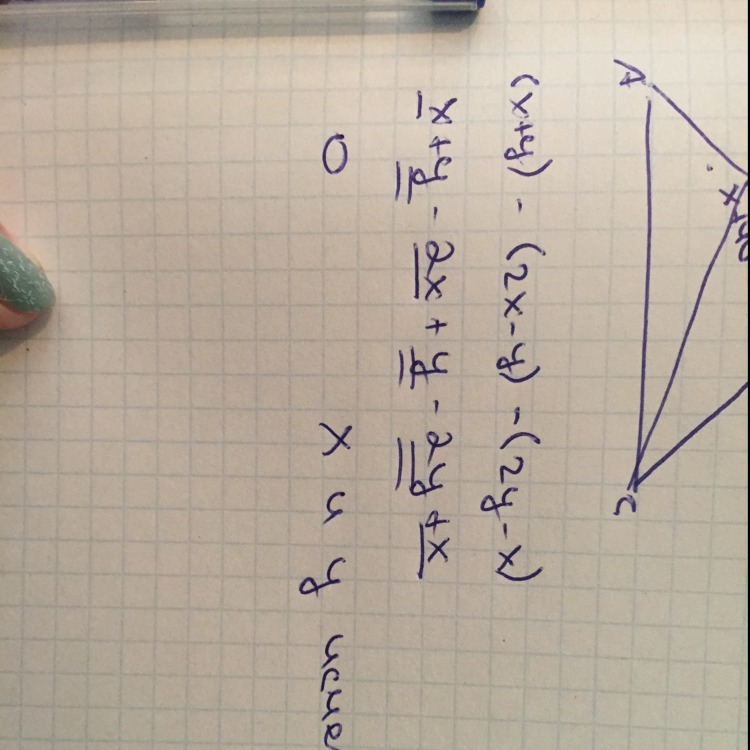 A
C
(x+y) - (2x-y) - (2y-x)
x+y - 2x + y - 2y + x
0 x и y